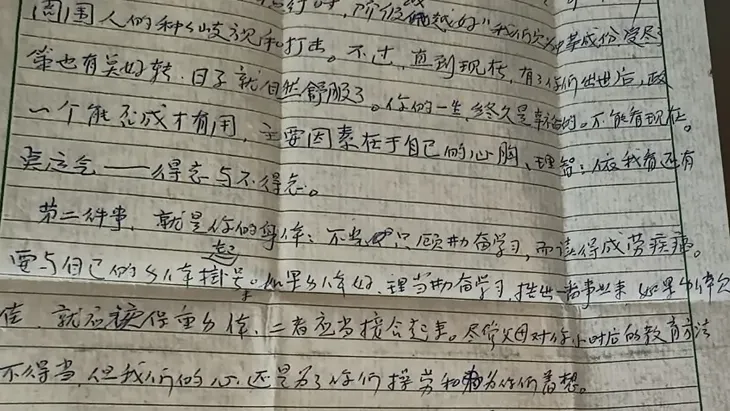 时，阶级越好"我们父辈成份受尽
周围人的种种歧视和打击。不过，直到现在，有了你们出世后，政
策也有莫好转，日子就自然舒服了。你的一生，终久是幸福的。不能看现在。
一个能否成才有用，主要因素在于自己的心胸、理智；依我看还有
莫运气——得志与不得志。
第二件事，就是你的身体：不当只顾勤奋学习，而误得成劳疾病。
要与自己的身体挂起号。如果身体好，理当勤奋学习，搞出一番事业来，如果身体欠
佳，就应该保重身体，二者应当接合起来。尽管父母对你小时后的教育方法
不得当，但我们的心还是为了你们操劳和为你们着想。